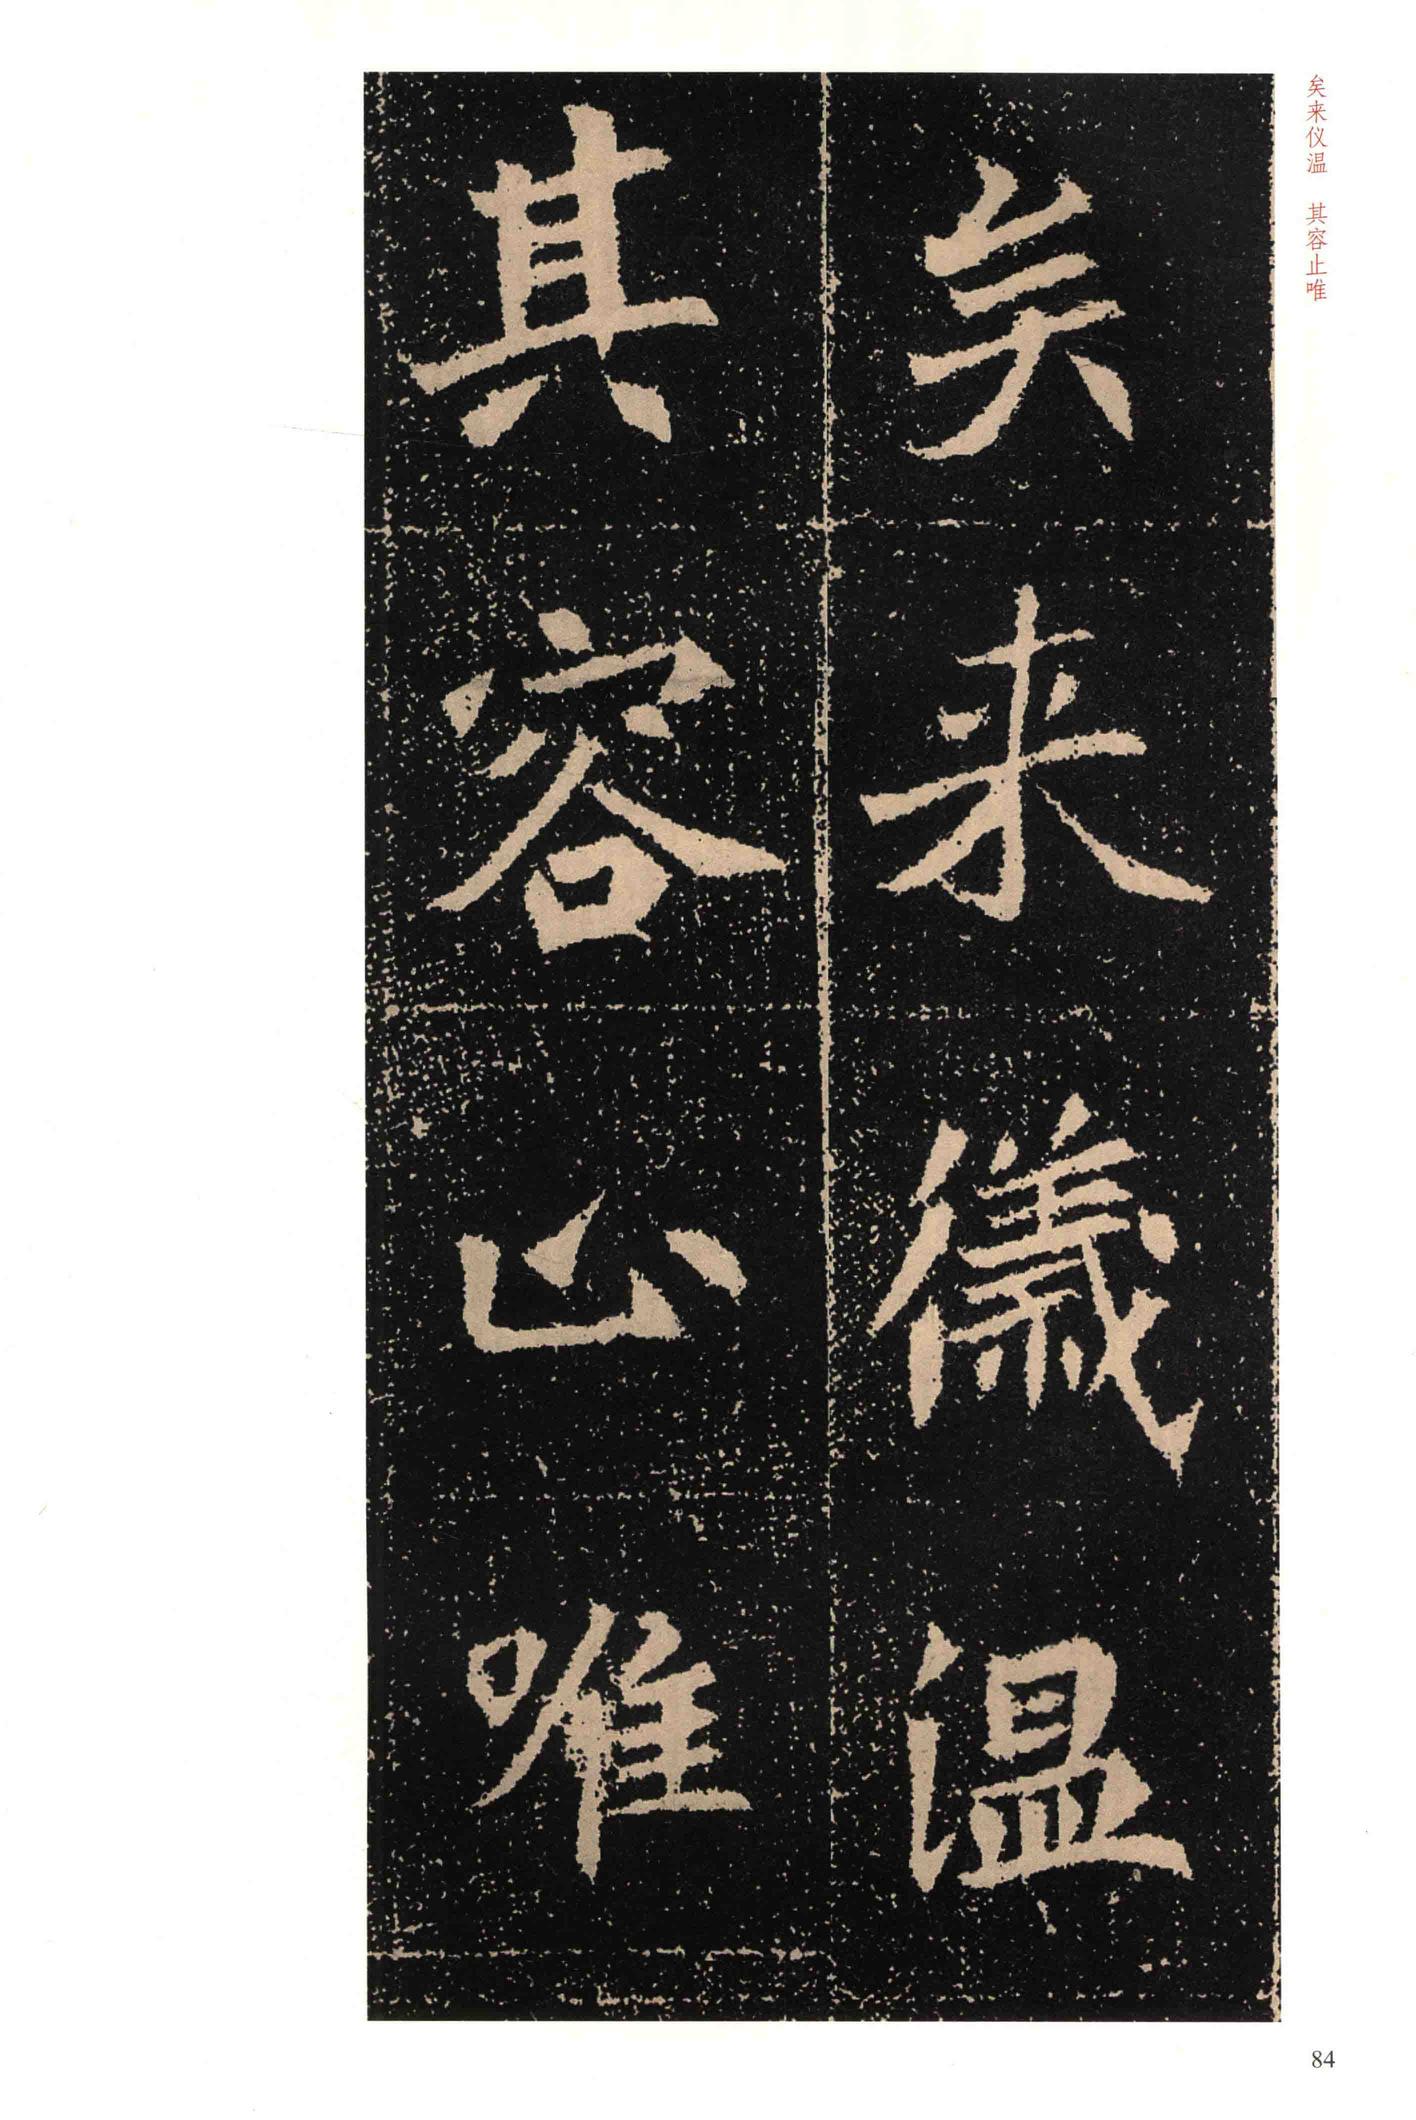 矣来仪温　其容止唯
矣来儀温
其容止唯
84